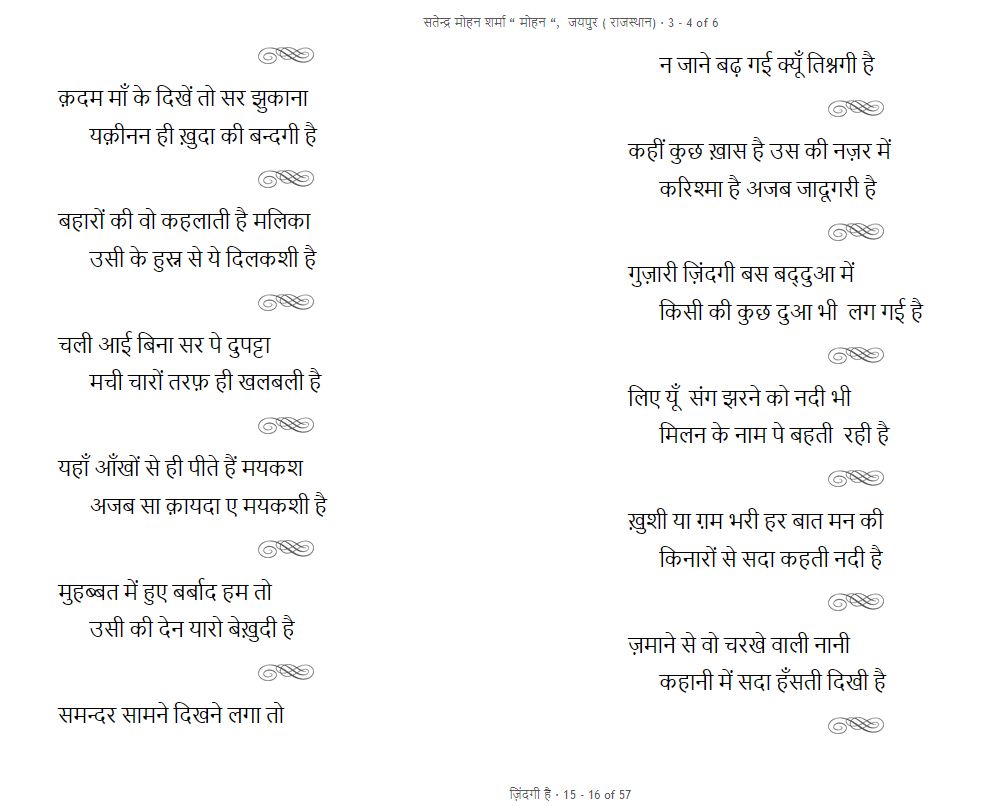 सतेन्द्र मोहन शर्मा “ मोहन “,  जयपुर ( राजस्थान) · 3 - 4 of 6
क़दम माँ के दिखें तो सर झुकाना
यक़ीनन ही ख़ुदा की बन्दगी है
बहारों की वो कहलाती है मलिका
उसी के हुस्न से ये दिलकशी है
चली आई बिना सर पे दुपट्टा
मची चारों तरफ़ ही खलबली है
यहाँ आँखों से ही पीते हैं मयकश
अजब सा क़ायदा ए मयकशी है
मुहब्बत में हुए बर्बाद हम तो
उसी की देन यारो बेख़ुदी है
समन्दर सामने दिखने लगा तो
न जाने बढ़ गई क्यूँ तिश्नगी है
कहीं कुछ ख़ास है उस की नज़र में
करिश्मा है अजब जादूगरी है
गुज़ारी ज़िंदगी बस बद्दुआ में
किसी की कुछ दुआ भी  लग गई है
लिए यूँ  संग झरने को नदी भी
मिलन के नाम पे बहती  रही है
ख़ुशी या ग़म भरी हर बात मन की
किनारों से सदा कहती नदी है
ज़माने से वो चरखे वाली नानी
कहानी में सदा हँसती दिखी है
ज़िंदगी है · 15 - 16 of 57